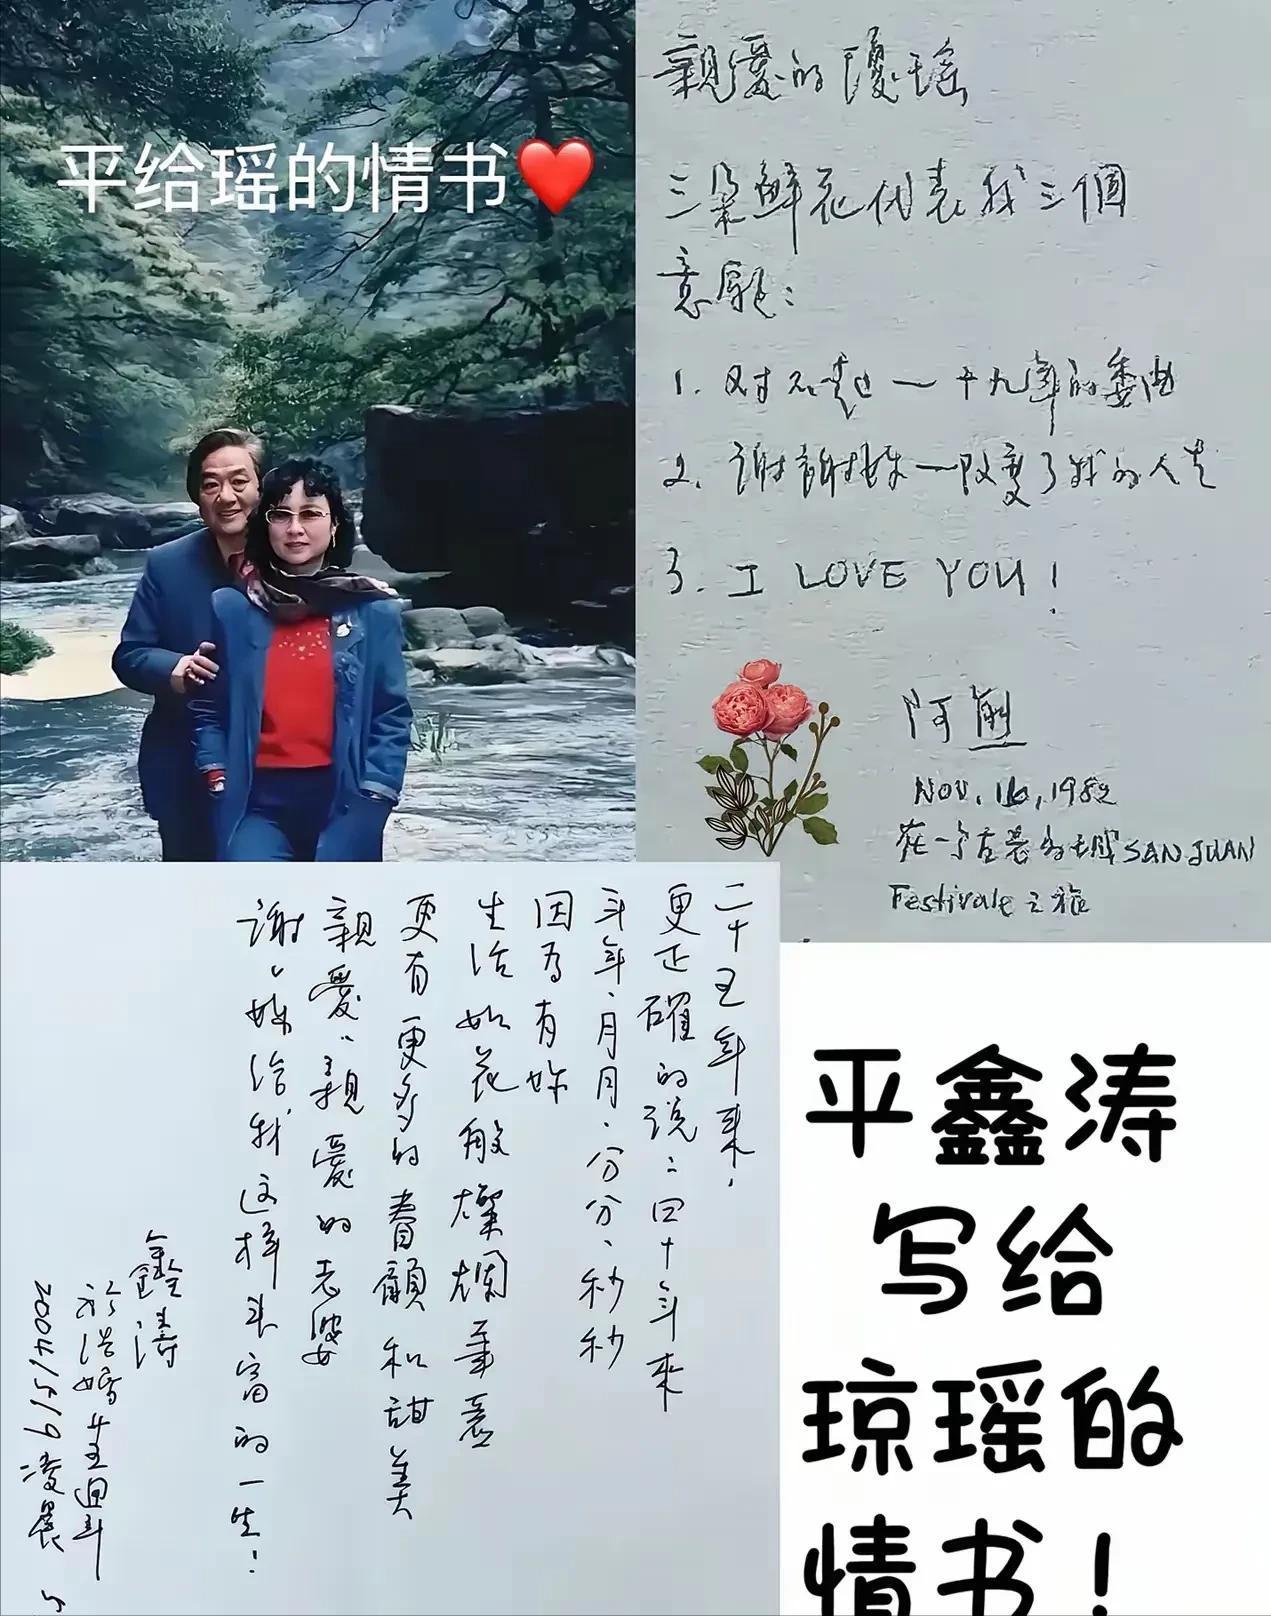 平给瑶的情书❤
親愛的瓊瑤
三朵鮮花代表我三個
意願：
1. 对不起一十九年的委曲
2. 謝謝妳一改變了我的人生
3. I LOVE YOU！
NOV. 16, 1982
在一个古裝的城 SAN JUAN
Festivale 之旅
二十五年来，
更正確的说：四十年來
年年、月月、分分、秒秒
因為有妳
生活如花般燦爛華麗
更有更多的眷顧和甜美
親愛、親愛的老婆
謝謝妳給我这样丰富的一生！
鑫涛
於結婚廿五週年
2004/5/9 凌晨
平鑫涛
写给
琼瑶的
情书！